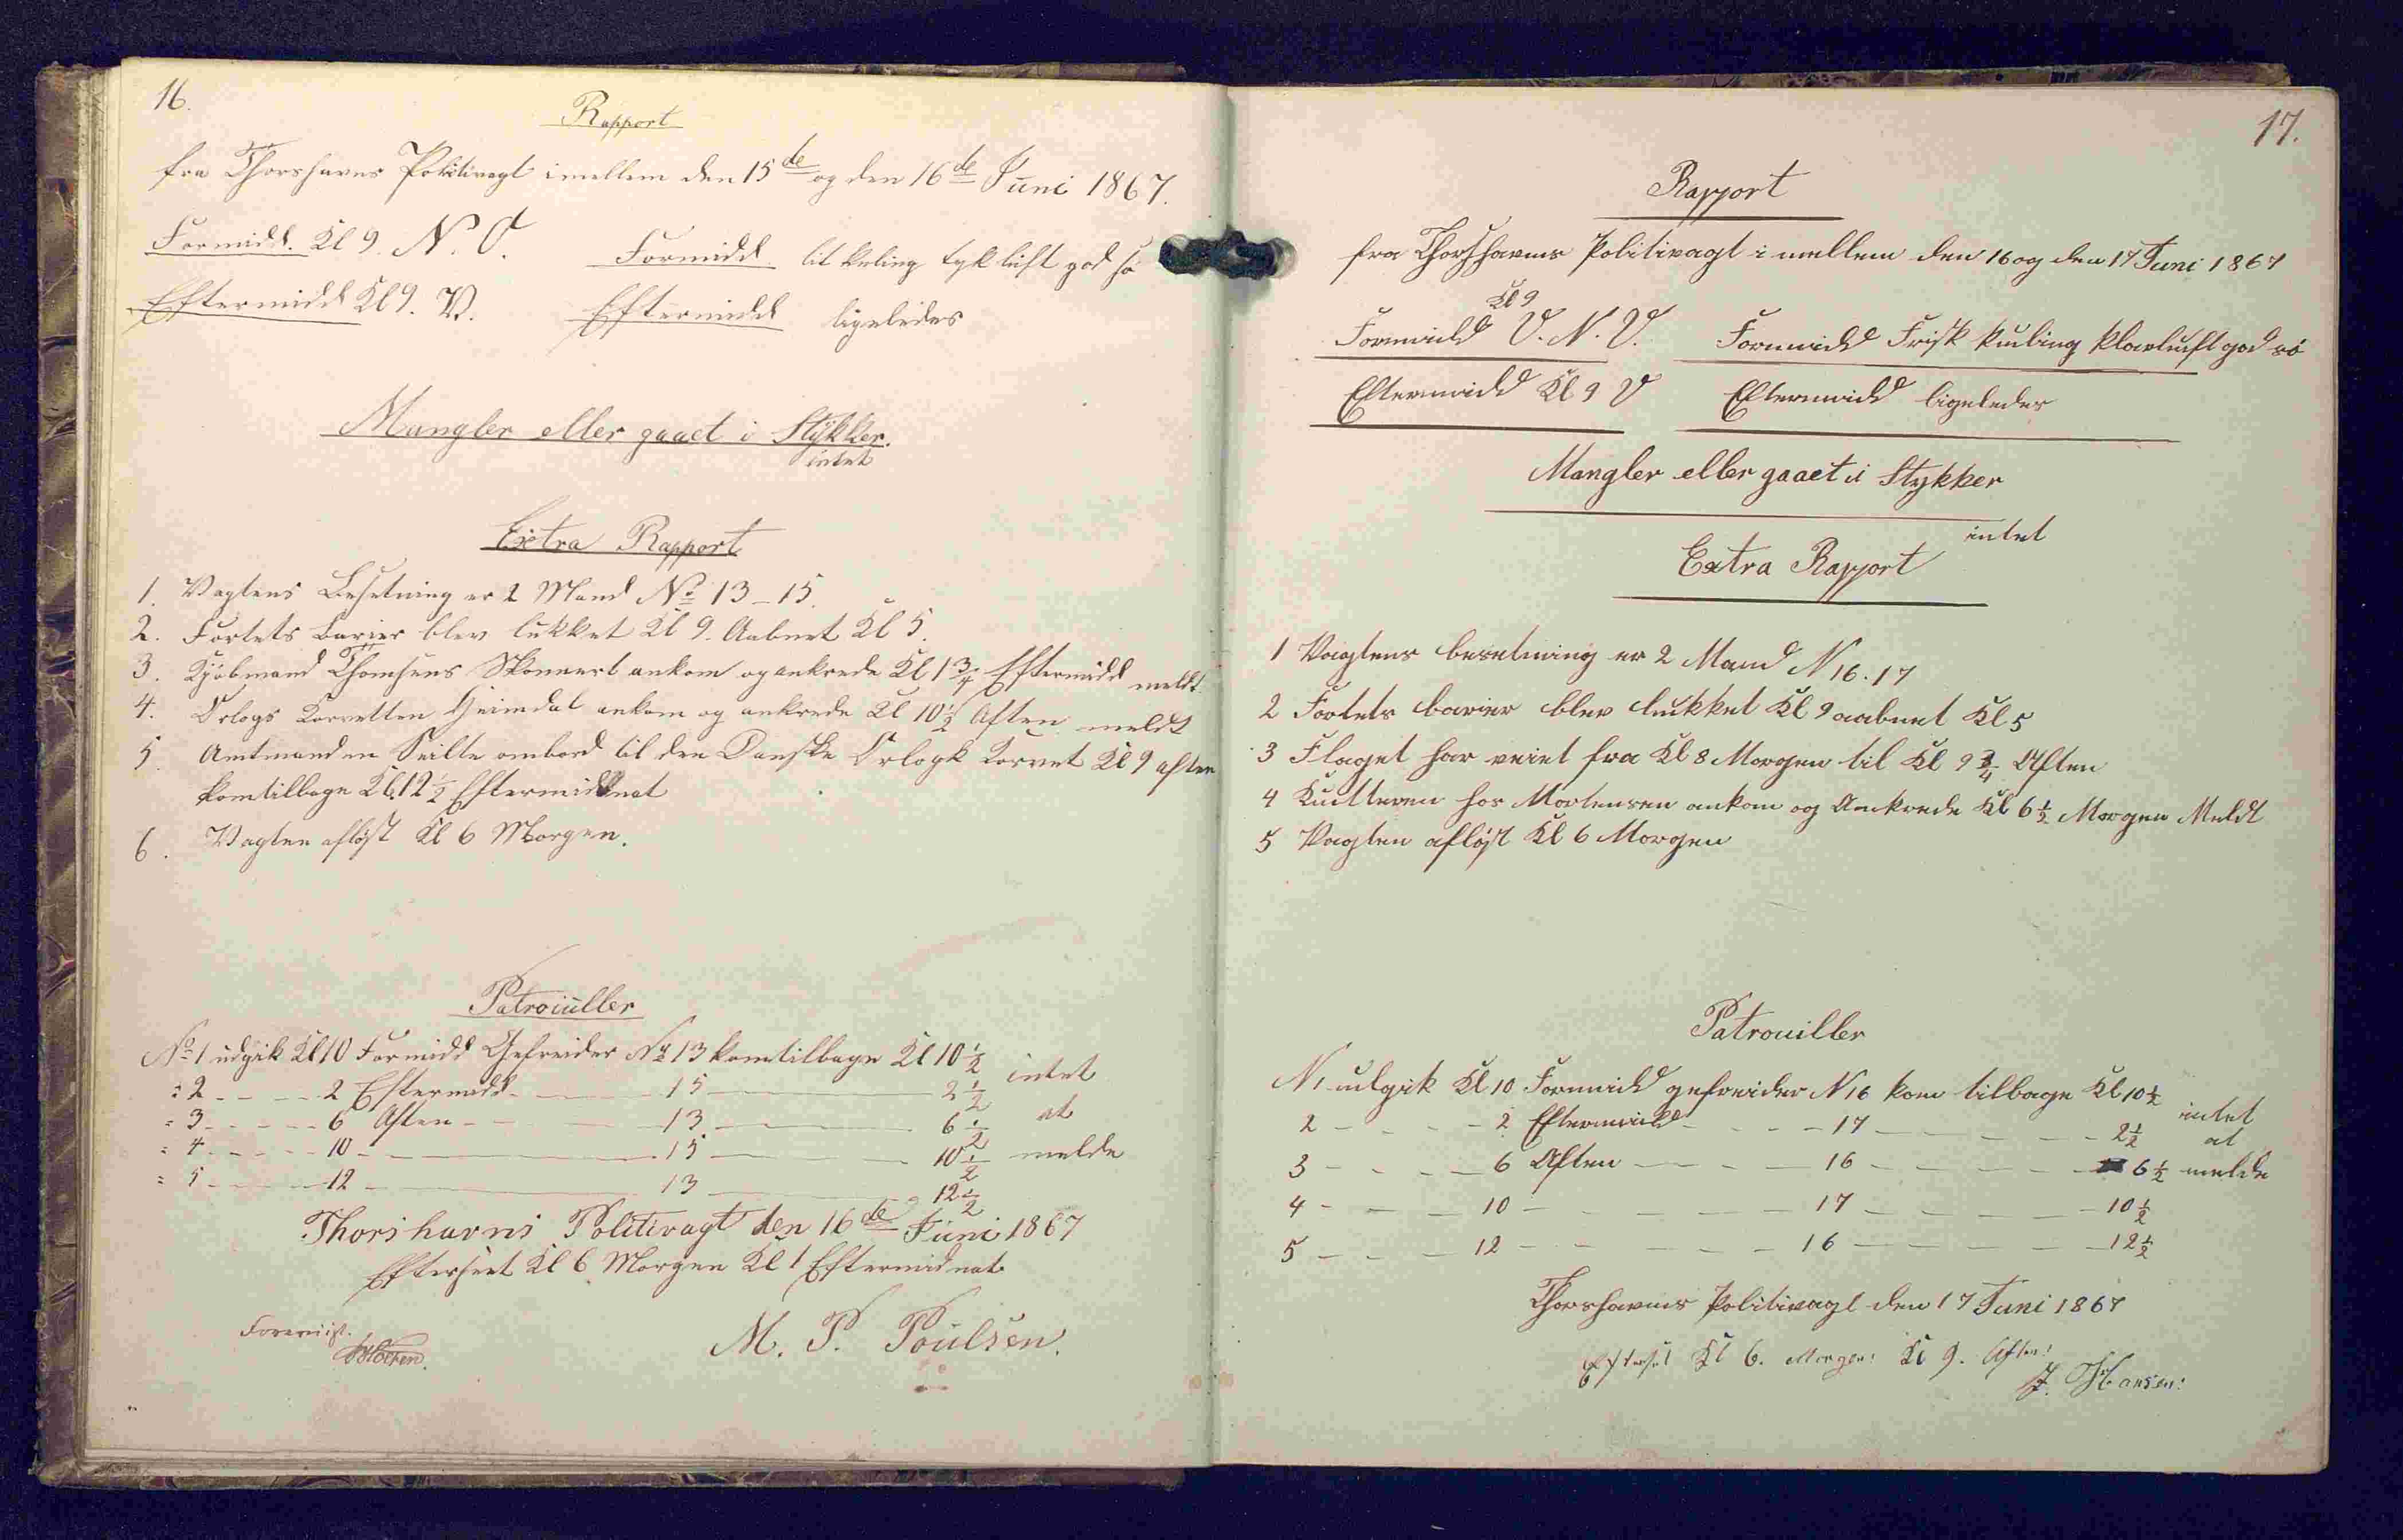 16.
Rapport
fra Thorshavns Politivagt imellem den 15de og den 16de Juni 1867.
Formidd. Kl 9. N. O. Formidd lit kuling tyk luft god sø
Eftermidd Kl 9. V. Eftermidd ligeledes
Mangler eller gaaet i Stykker.
intet
Extra Rapport
1. Vagtens Besetning er 2 Mand No 13-15.
2. Fortets barier blev lukket Kl 9. Aabnet Kl 5.
3. Kjøbmand Thomsens Skonnert ankom og ankrede Kl 1 3/4 Eftermidd meldt
4. Orlogs Korvetten Heimdal ankom og ankrede Kl 10 1/2 Aften meldt
5. Amtmanden Seilte ombord til den Danske Orlogk Korvet Kl 9 aften
komtilbage Kl 12 1/2 Eftermidnat
6. Vagten afløst Kl 6 Morgen.
Patrouiller
No 1 udgik Kl 10 Formidd Gefreider No 13 komtilbage Kl 10 1/2 intet
" 2 - - - 2 Eftermidd - 15 - 2 1/2
" 3 - - - 6 Aften - 13 - 6 1/2 at
" 4 - - - 10 - 15 - 10 1/2 melde
" 5 - - - 12 - 13 - 12 1/2
Thorshavns Politivagt den 16de Juni 1867
Efterseet Kl 6 Morgen Kl 1 Eftermidnat
Foreviist.
M. P. Poulsen.
17.
Rapport
fra Thorshavns Politivagt i mellem den 16 og den 17 Juni 1867
Kl 9
Formidd V. N. V. Formidd Frisk kuling klarluft god sø
Eftermidd Kl 9 V Eftermidd ligeledes
Mangler eller gaaet i Stykker
intet
Extra Rapport
1 Vagtens besetning er 2 Mand N 16. 17
2 Fortets barier blev lukket Kl 9 aabnet Kl 5
3 Flaget har veiet fra Kl 8 Morgen til Kl 9 3/4 Aften
4 Kutteren hos Mortensen ankom og Ankrede Kl 6 1/2 Morgen Meldt
5 Vagten afløst Kl 6 Morgen
Patrouiller
N 1 udgik Kl 10 Formidd gefreider N 16 kom tilbage Kl 10 1/2 intet
2 - - - - 2 Eftermidd - - - - 17 - - - - 2 1/2 at
3 - - - - 6 Aften - - - 16 - - - - 6 1/2 melde
4 - - - 10 - - - - 17 - - - - 10 1/2
5 - - - 12 - - - - 16 - - - - 12 1/2
Thorshavns Politivagt den 17 Juni 1867
Efterset Kl 6. Morgen: Kl 9. Aften:
J. Hansen: